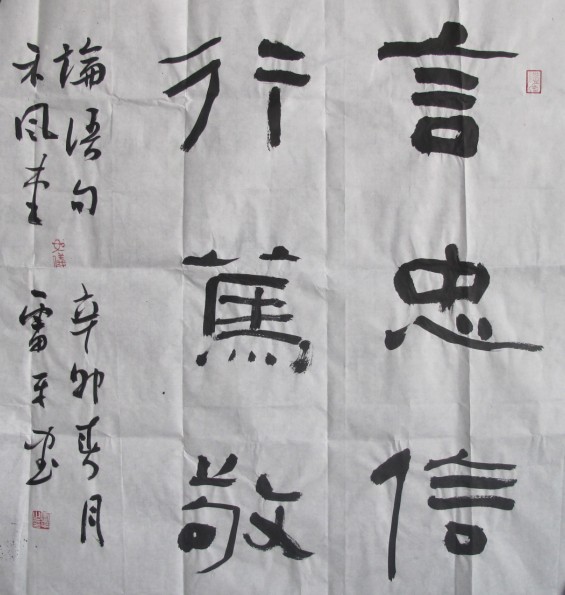 言忠信
行篤敬
論語句 辛卯春月
禾風堂 一雷平書